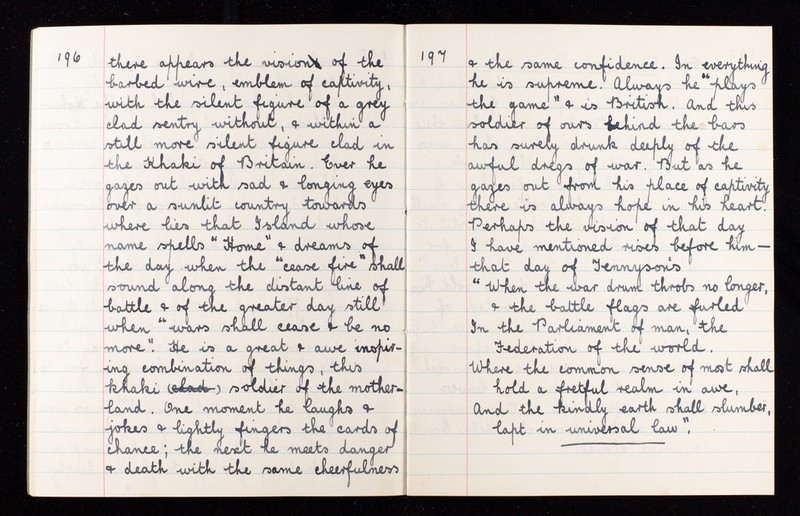 196
there appears the vision of the
barbed wire, emblem of captivity,
with the silent figure of a grey
clad sentry without, & within a
still more silent figure clad in
the Khaki of Britain. Ever he
gazes out with sad & longing eyes
over a sunlit country towards
where lies that Island whose
name spells "Home" & dreams of
the day when the "cease fire" shall
sound along the distant line of
battle & of the greater day still
when "wars shall cease & be no
more". He is a great & awe inspir-
ing combination of things, this
khaki (clad) soldier of the mother-
land. One moment he laughs &
jokes & lightly fingers the cards of
chance; the next he meets danger
& death with the same cheerfulness
197
& the same confidence. In everything
he is supreme. Always he "plays
the game" & is British. And this
soldier of ours behind the bars
has surely drunk deeply of the
awful dregs of war. But as he
gazes out from his place of captivity
there is always hope in his heart.
Perhaps the vision of that day
I have mentioned rises before him —
that day of Tennyson's
"When the war drum throbs no longer,
& the battle flags are furled
In the Parliament of man, the
Federation of the world.
Where the common sense of most shall
hold a fretful realm in awe,
And the kindly earth shall slumber,
lapt in universal law".